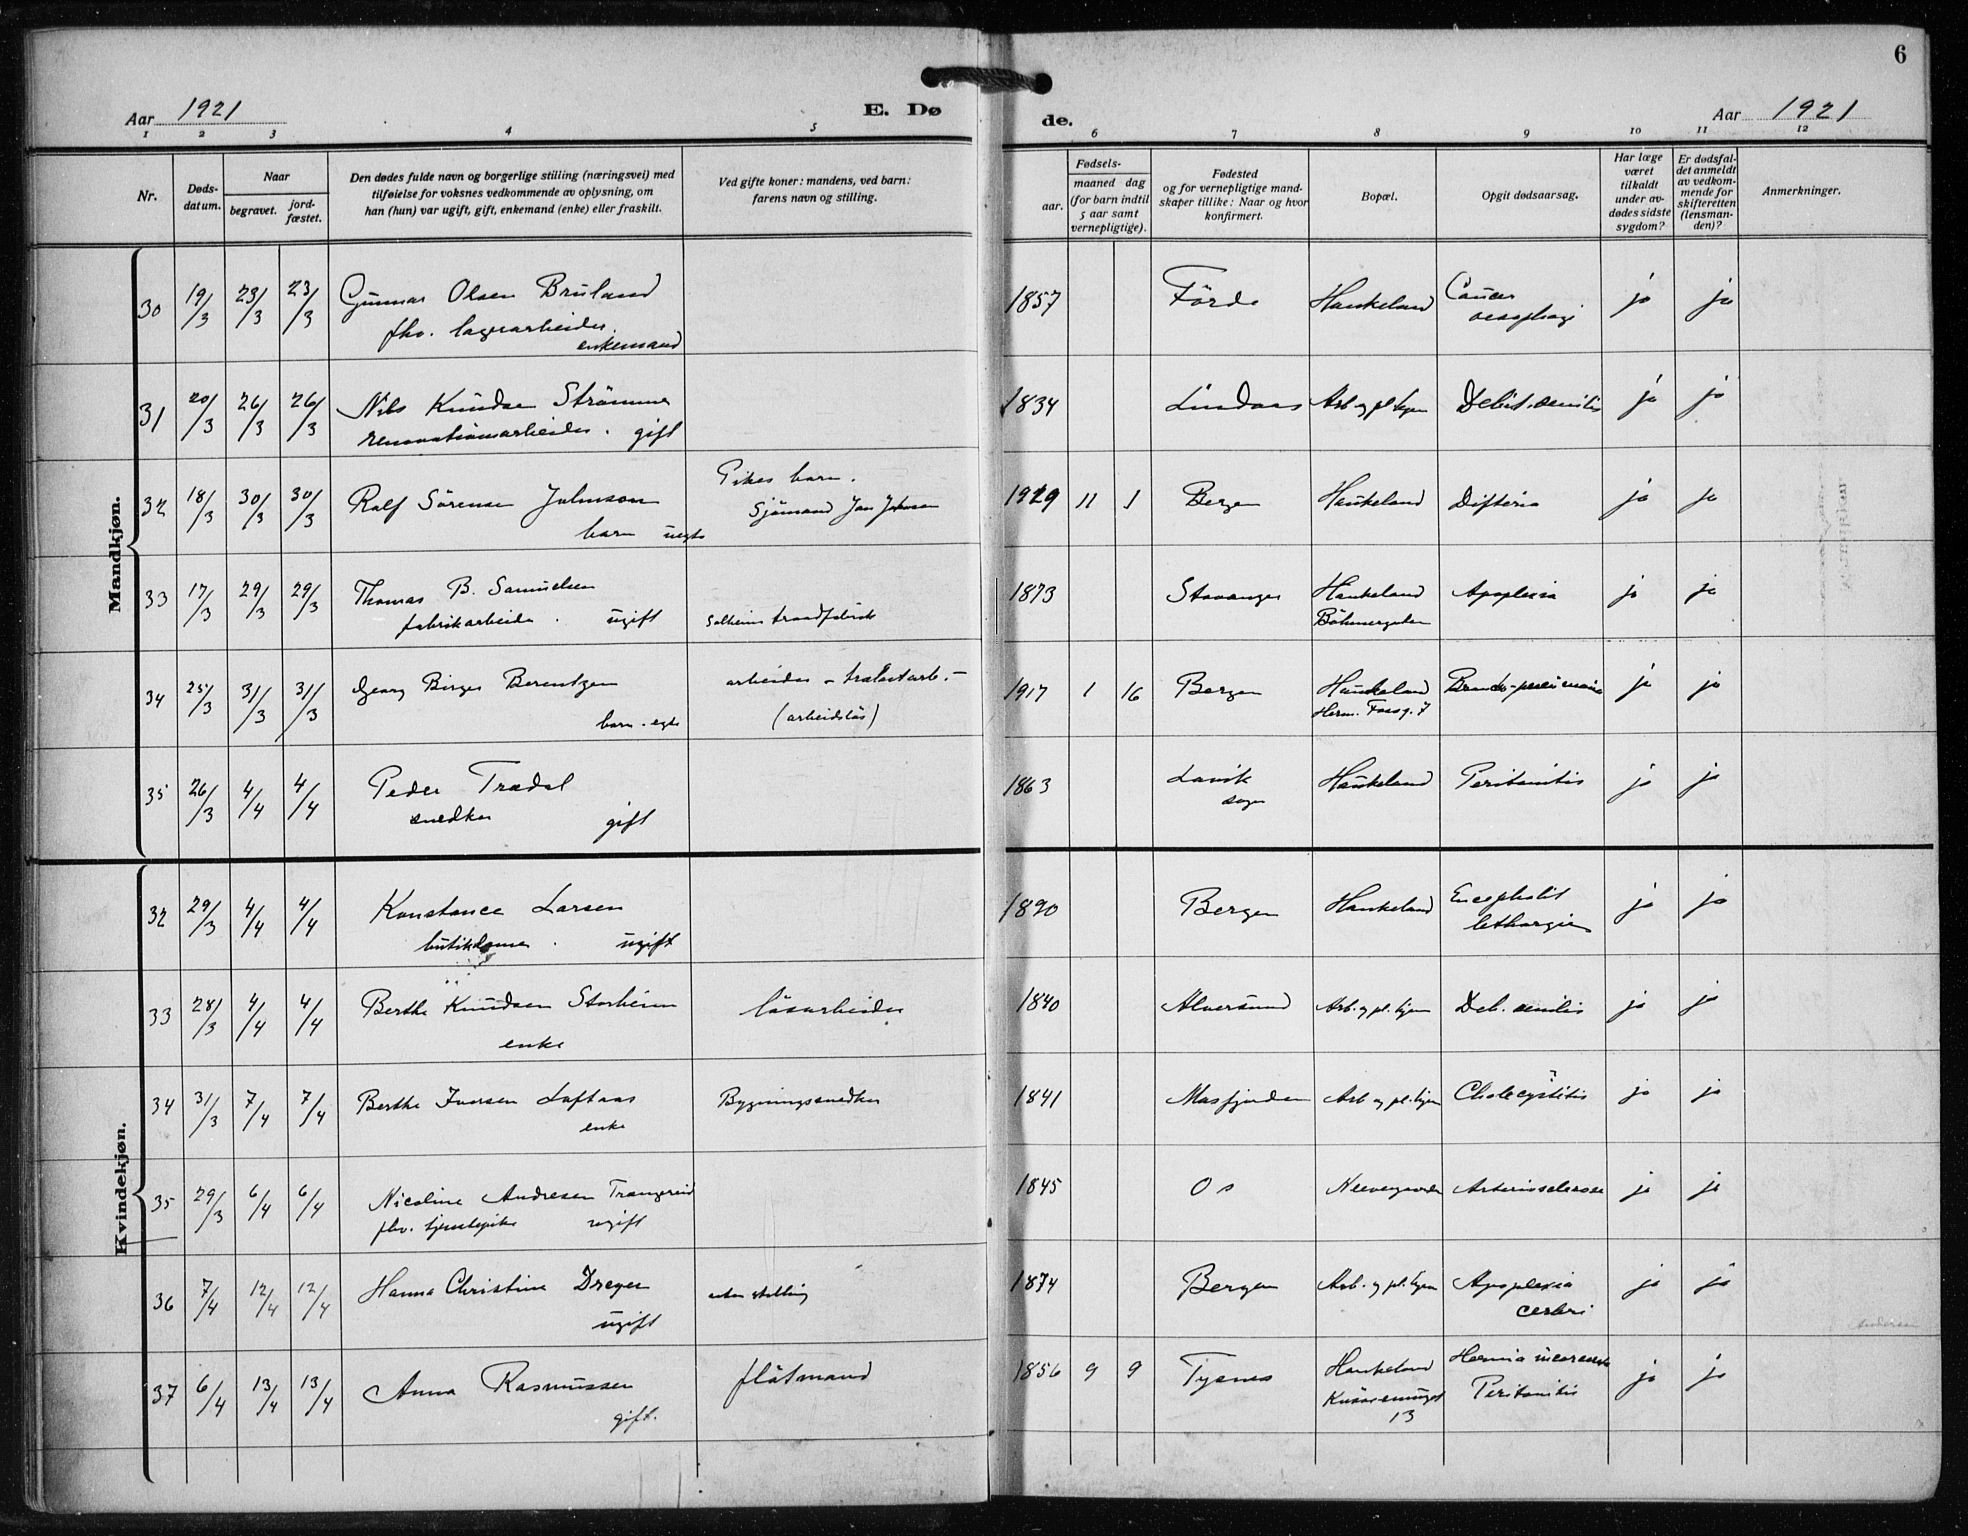 6
Aar 1921
E. Dø
de.
Aar 1921
1 2 3 4 5 6 7 8 9 10 11 12
Nr.
Døds-
datum.
Naar
begravet.
jord-
fæstet.
Den dødes fulde navn og borgerlige stilling (næringsvei) med
tilføielse for voksnes vedkommende av oplysning, om
han (hun) var ugift, gift, enkemand (enke) eller fraskilt.
Ved gifte koner: mandens, ved barn:
farens navn og stilling.
Fødsels-
aar.
maaned dag
(for barn indtil
5 aar samt
vernepligtige).
Fødested
og for vernepligtige mand-
skaper tillike: Naar og hvor
konfirmert.
Bopæl.
Opgit dødsaarsag.
Har læge
været
tilkaldt
under av-
dødes sidste
sygdom?
Er dødsfal-
det anmeldt
av vedkom-
mende for
skifteretten
(lensman-
den)?
Anmerkninger.
Mandkjøn.
30 19/3 23/3 23/3 Gunnar Olsen Bruland 1857 Förde Haukeland Cancer ja ja
fhv. lagerarbeider oesophagi
enkemand
31 20/3 26/3 26/3 Nils Knudsen Strömme 1834 Lindaas Arb og pl. hjem Debil. senilis ja ja
renovationsarbeider. gift
32 18/3 30/3 30/3 Rolf Sörensen Johnson Pikes barn. 1929 11 1 Bergen Haukeland Difteria ja ja
barn uegte Sjömand Jan Johnson
33 17/3 29/3 29/3 Thomas B. Samuelsen 1873 Stavanger Haukeland Apoplexia ja ja
fabrikarbeider. ugift Solheim traadfabrik Böhmergaten
34 25/3 31/3 31/3 Georg Birger Berentzen arbeider - trælastarb. - 1917 1 16 Bergen Haukeland Broncho-pneumonia ja ja
barn. egte (arbeidslös) Herm. Fossg. 7
35 26/3 4/4 4/4 Peder Trædal 1863 Lavik Haukeland Peritonitis ja ja
snedker gift sogn
Kvindekjøn.
32 29/3 4/4 4/4 Konstance Larsen 1890 Bergen Haukeland Encephalit ja ja
butikdame. ugift lethargica
33 28/3 4/4 4/4 Berthe Knudsen Storheim lösarbeider 1840 Alversund Arb. og pl. hjem Deb. senilis ja ja
enke
34 31/3 7/4 7/4 Berthe Iversen Loftaas Bygningssnedker 1841 Masfjorden Arb og pl. hjem Cholecystitis ja ja
enke
35 29/3 6/4 6/4 Nicoline Andresen Trangereid 1845 Os Neevengaarden Arteriosclerose ja ja
fhv. tjenestepike ugift
36 7/4 12/4 12/4 Hanna Christine Dreyer uten stilling 1874 Bergen Arb. og pl. hjem Apoplexia ja ja
ugift cerebri
Andersen
37 6/4 13/4 13/4 Anna Rasmussen flötmand 1856 9 9 Tysnes Haukeland Hernia incarcerata ja ja
gift. 13 Peritonitis